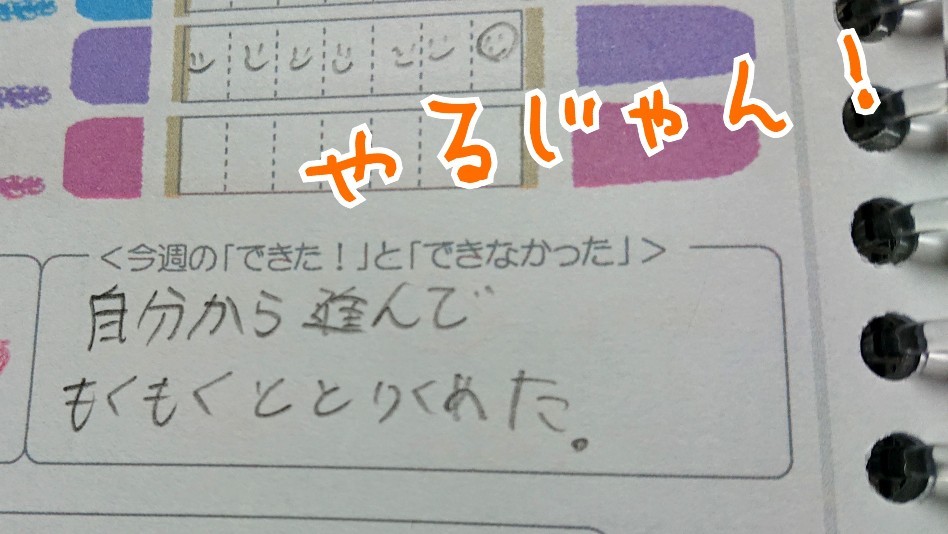 やるじゃん!
<今週の「できた!」と「できなかった」>
自分から進んで
もくもくととりくめた。